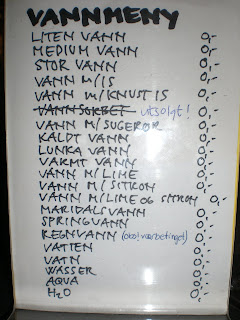 VANNMENY
LITEN VANN 0,-
MEDIUM VANN 0,-
STOR VANN 0,-
VANN M/IS 0,-
VANN M/KNUST IS 0,-
VANNSORBET utsolgt!
VANN M/ SUGERØR 0,-
KALDT VANN 0,-
LUNKA VANN 0,-
VARMT VANN 0,-
VANN M/LIME 0,-
VANN M/ SITRON 0,-
VANN M/LIME OG SITRON 0,-
MARIDALSVANN 0,-
SPRINGVANN 0,-
REGNVANN (obs! værbetinget) 0,-
VATTEN 0,-
VATN 0,-
WASSER 0,-
AQUA 0,-
H2O 0,-